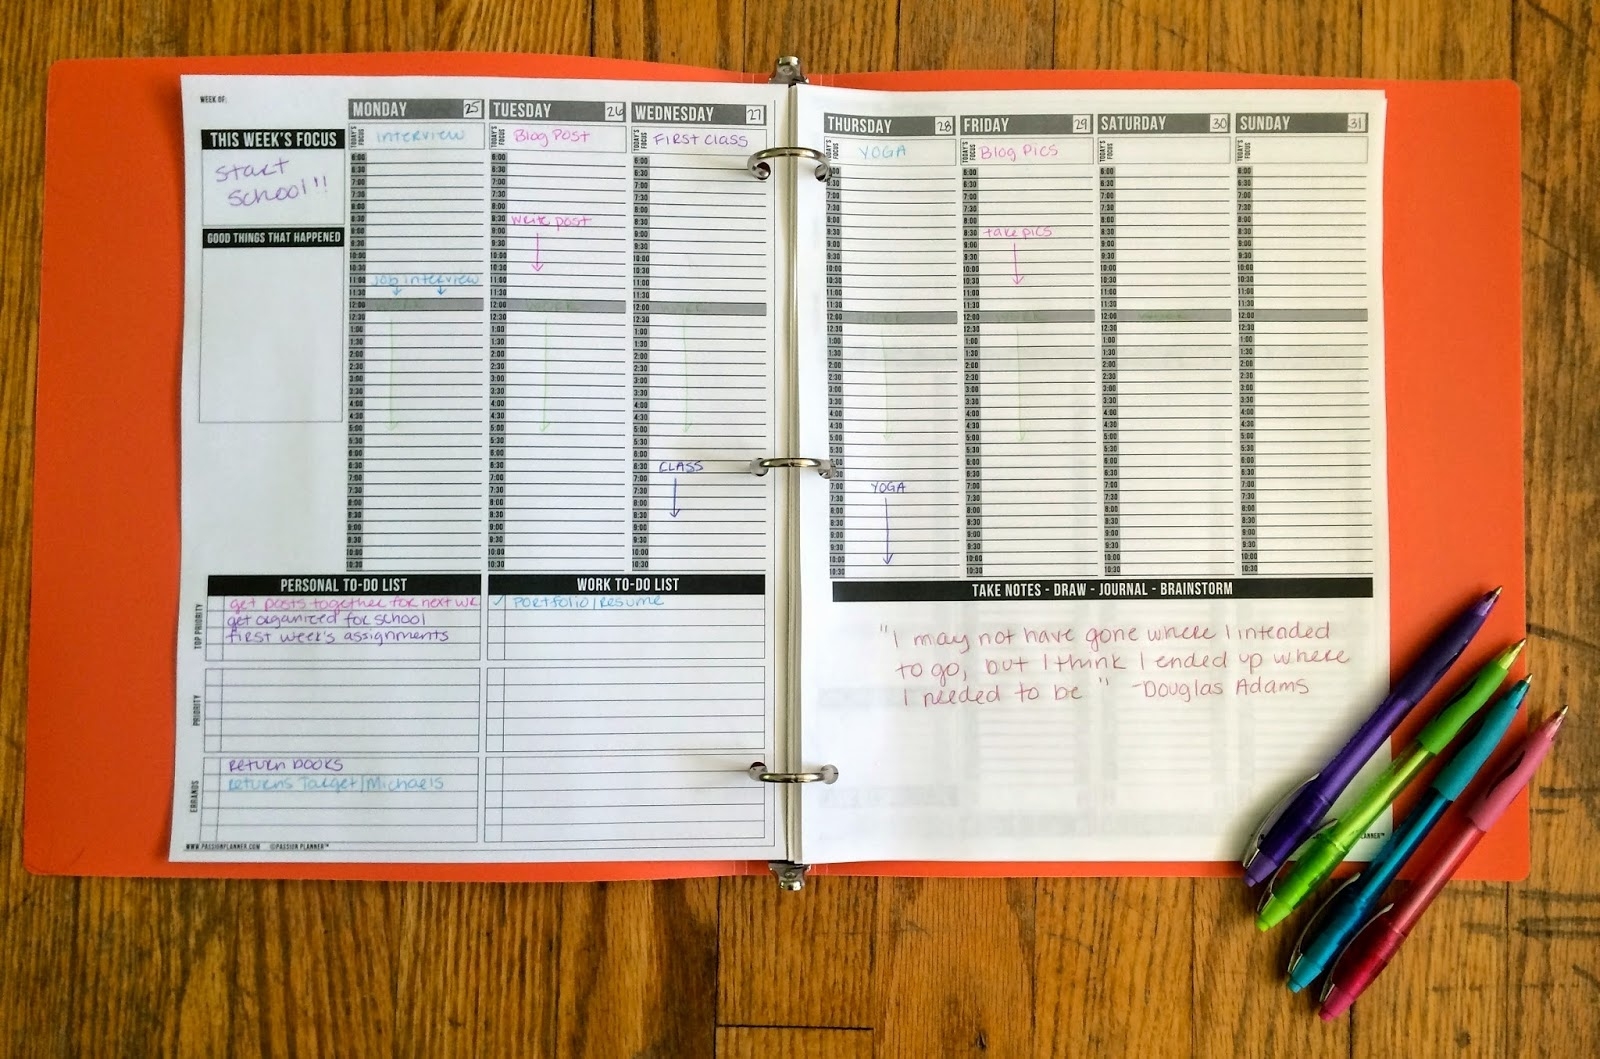 WEEK OF:
THIS WEEK'S FOCUS
Start
School!!
GOOD THINGS THAT HAPPENED
MONDAY 25
TODAY'S FOCUS
Interview
6:00
6:30
7:00
7:30
8:00
8:30
9:00
9:30
10:00
10:30
11:00 Job interview
11:30
12:00 WORK
12:30
1:00
1:30
2:00
2:30
3:00
3:30
4:00
4:30
5:00
5:30
6:00
6:30
7:00
7:30
8:00
8:30
9:00
9:30
10:00
10:30
TUESDAY 26
TODAY'S FOCUS
Blog Post
6:00
6:30
7:00
7:30
8:00
8:30 write post
9:00
9:30
10:00
10:30
11:00
11:30
12:00 WORK
12:30
1:00
1:30
2:00
2:30
3:00
3:30
4:00
4:30
5:00
5:30
6:00
6:30
7:00
7:30
8:00
8:30
9:00
9:30
10:00
10:30
WEDNESDAY 27
TODAY'S FOCUS
First Class
6:00
6:30
7:00
7:30
8:00
8:30
9:00
9:30
10:00
10:30
11:00
11:30
12:00 WORK
12:30
1:00
1:30
2:00
2:30
3:00
3:30
4:00
4:30
5:00
5:30
6:00
6:30 CLASS
7:00
7:30
8:00
8:30
9:00
9:30
10:00
10:30
THURSDAY 28
TODAY'S FOCUS
YOGA
6:00
6:30
7:00
7:30
8:00
8:30
9:00
9:30
10:00
10:30
11:00
11:30
12:00 WORK
12:30
1:00
1:30
2:00
2:30
3:00
3:30
4:00
4:30
5:00
5:30
6:00
6:30
7:00 YOGA
7:30
8:00
8:30
9:00
9:30
10:00
10:30
FRIDAY 29
TODAY'S FOCUS
Blog Pics
6:00
6:30
7:00
7:30
8:00
8:30 take pics
9:00
9:30
10:00
10:30
11:00
11:30
12:00 WORK
12:30
1:00
1:30
2:00
2:30
3:00
3:30
4:00
4:30
5:00
5:30
6:00
6:30
7:00
7:30
8:00
8:30
9:00
9:30
10:00
10:30
SATURDAY 30
TODAY'S FOCUS
6:00
6:30
7:00
7:30
8:00
8:30
9:00
9:30
10:00
10:30
11:00
11:30
12:00
12:30
1:00
1:30
2:00
2:30
3:00
3:30
4:00
4:30
5:00
5:30
6:00
6:30
7:00
7:30
8:00
8:30
9:00
9:30
10:00
10:30
SUNDAY 31
TODAY'S FOCUS
6:00
6:30
7:00
7:30
8:00
8:30
9:00
9:30
10:00
10:30
11:00
11:30
12:00
12:30
1:00
1:30
2:00
2:30
3:00
3:30
4:00
4:30
5:00
5:30
6:00
6:30
7:00
7:30
8:00
8:30
9:00
9:30
10:00
10:30
PERSONAL TO-DO LIST
TOP PRIORITY
get posts together for next wk
get organized for school
first week's assignments
PRIORITY
ERRANDS
return books
returns Target/Michaels
WORK TO-DO LIST
✓ Portfolio/resume
WWW.PASSIONPLANNER.COM ©PASSION PLANNER™
TAKE NOTES - DRAW - JOURNAL - BRAINSTORM
"I may not have gone where I intended
to go, but I think I ended up where
I needed to be" -Douglas Adams